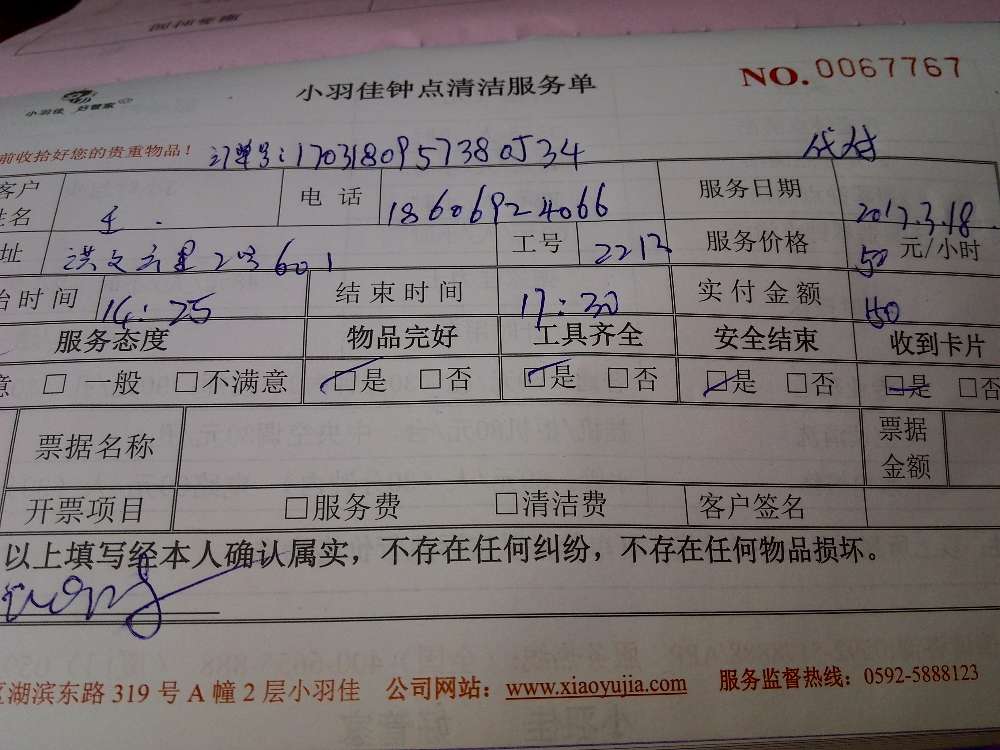 小羽佳 好管家
小羽佳钟点清洁服务单
NO. 0067767
前收拾好您的贵重物品！ 订单号：1703180957380534
客户姓名 王. 电话 18606924066 服务日期 2017.3.18
址 洪文六里2号601 工号 2213 服务价格 50 元/小时
始时间 14:25 结束时间 17:30 实付金额
服务态度 物品完好 工具齐全 安全结束 收到卡片
意 □ 一般 □不满意 □是 □否 □是 □否 □是 □否 □是 □否
票据名称 票据金额
开票项目 □服务费 □清洁费 客户签名
以上填写经本人确认属实，不存在任何纠纷，不存在任何物品损坏。
区湖滨东路 319 号 A 幢 2 层小羽佳 公司网站：www.xiaoyujia.com 服务监督热线：0592-5888123